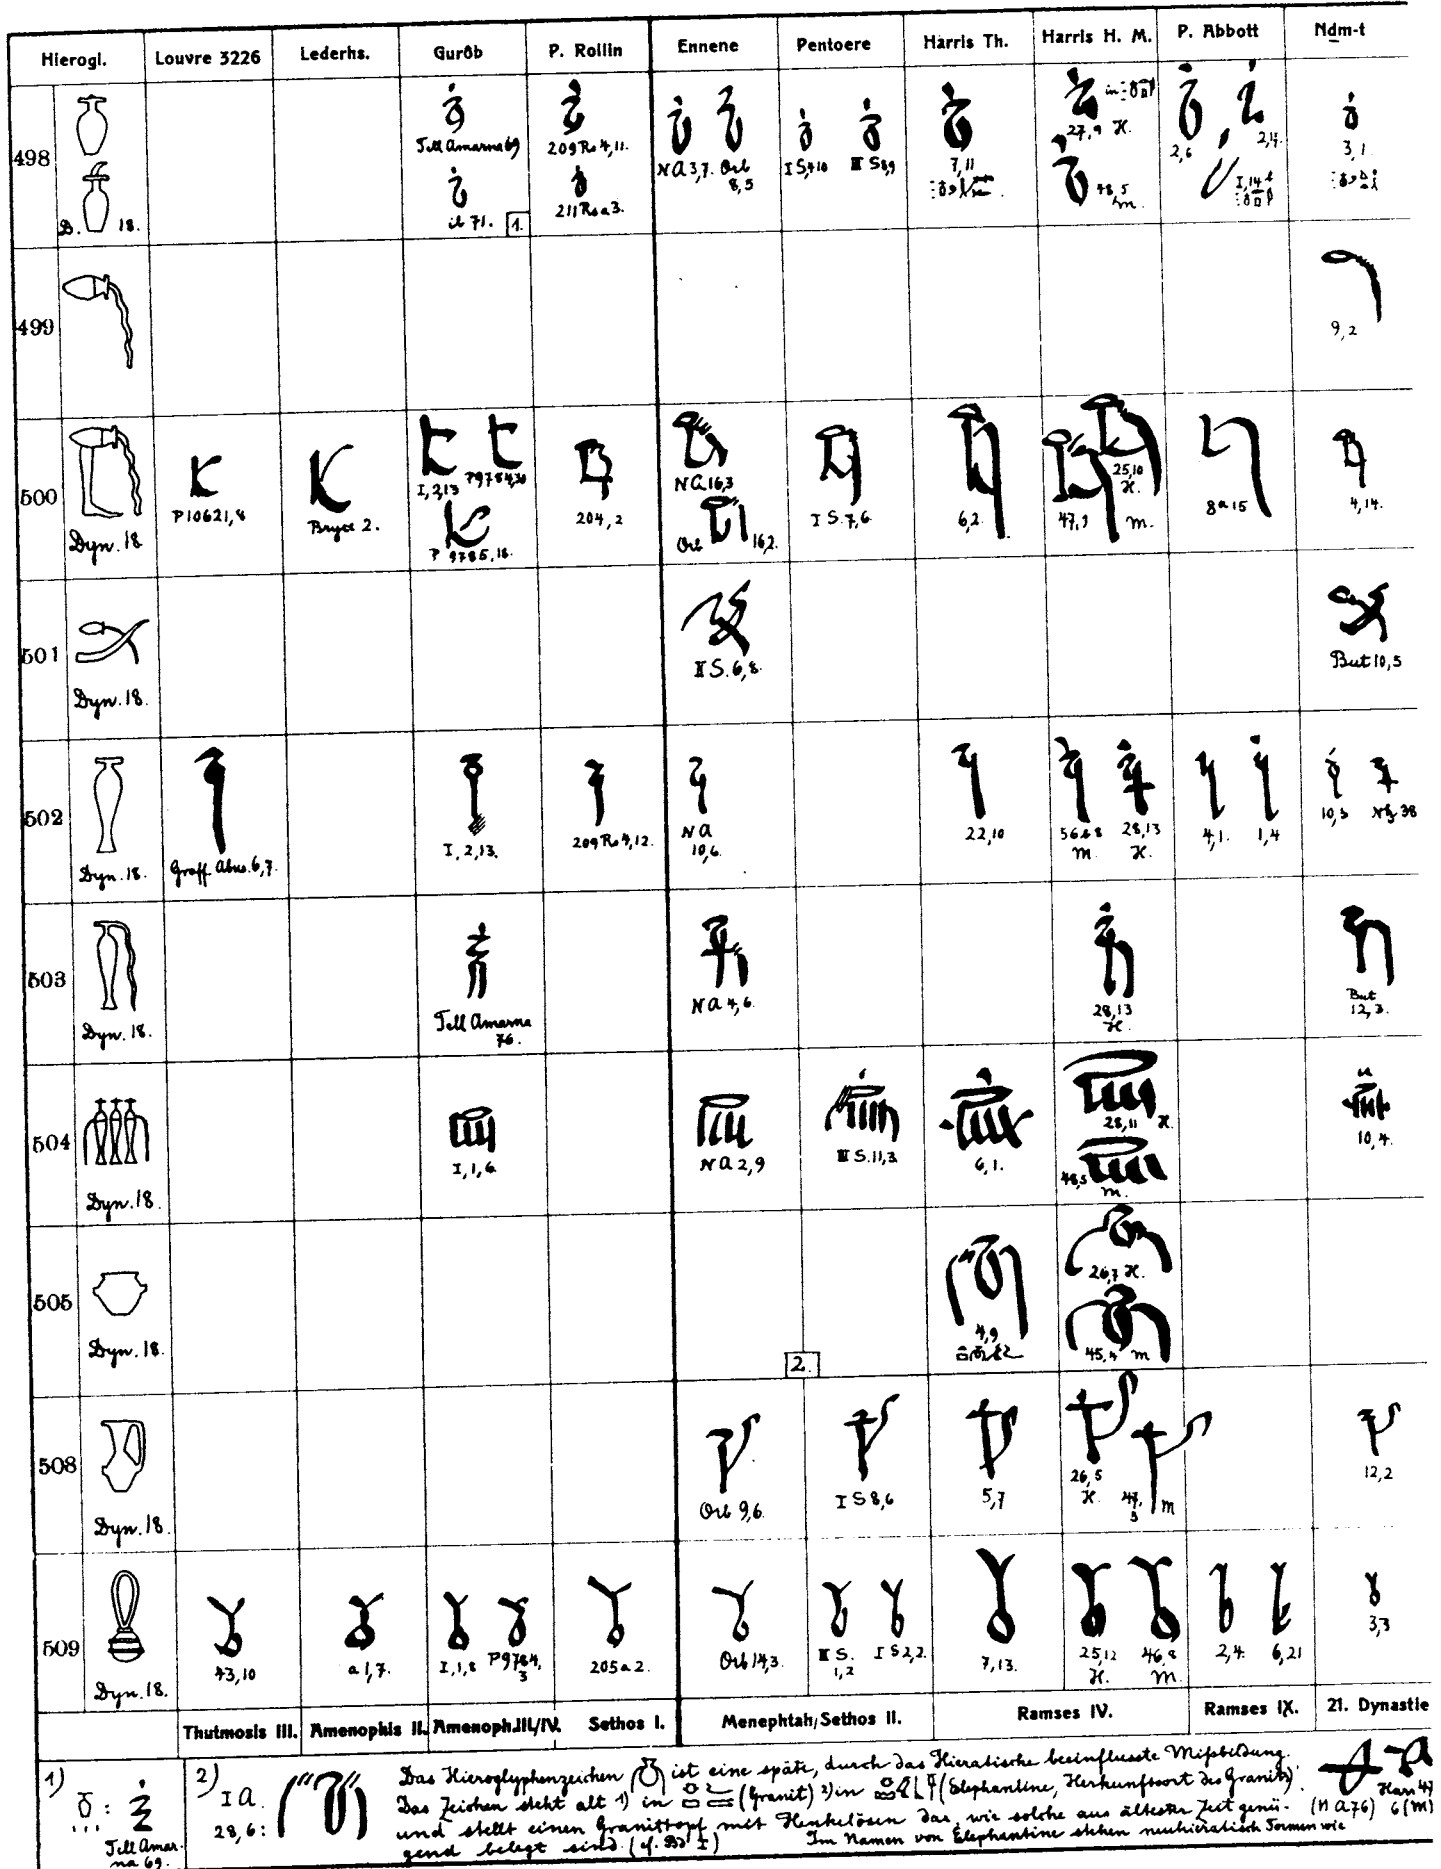 Hierogl. Louvre 3226 Lederhs. Gurôb P. Rollin Ennene Pentoere Harris Th. Harris H. M. P. Abbott Ndm-t
498
D. 18.
Tell Amarna 69
ib 71. 1.
209 Ro 4,11.
211 Rs a 3.
NA 3,7. Orb 8,5
I S 4,10 II S 8,9
7,11
27,9 H.
48,5 m.
2,6 2,4.
I,14
3,1.
499
9,2
500
Dyn. 18
P 10621,8
Bryce 2.
I,2,13 P 9784,30
P 9785,18.
204,2
NA 16,3
Orb 16,2.
I S. 7,6.
6,2.
25,10 H.
47,9 m.
8a 15
4,14.
501
Dyn. 18.
II S. 6,8.
But 10,5
502
Dyn. 18.
Graff. Abus. 6,7.
I, 2, 13.
209 Ro 4,12.
NA 10,6.
22,10
56a8 M. 28,13 H.
4,1. 1,4
10,3 38
503
Dyn. 18.
Tell Amarna 76.
NA 4,6.
28,13 H.
But 12,3.
504
Dyn. 18.
I,1,6.
NA 2,9
II S. 11,3.
6,1.
28,11 H.
48,5 m.
10,4.
505
Dyn. 18.
2.
4,9
26,7 H.
45,4 m
508
Dyn. 18.
Orb 9,6.
I S 8,6
5,7
26,5 H. 47,3 m
12,2
509
Dyn. 18.
43,10
a 1,7.
I,1,8 P 9784,3
205 a 2.
Orb 14,3.
II S. 1,2 I S 2,2.
7,13.
25,12 H. 46,8 M.
2,4. 6,21
3,3
Thutmosis III. Amenophis II. Amenoph.III/IV. Sethos I. Menephtah/Sethos II. Ramses IV. Ramses IX. 21. Dynastie
1)
Tell Amarna 69.
2) I A. 28,6:
Das Hieroglyphenzeichen ist eine späte, durch das Hieratische beeinflusste Mißbildung.
Das Zeichen steht alt 1) in (Granit) 2) in (Elephantine, Herkunftsort des Granits)
und stellt einen Granittopf mit Henkelösen dar, wie solche aus ältester Zeit genü-
gend belegt sind. (cf. Bd I) Im Namen von Elephantine stehen neuhieratisch Formen wie
(NA 76) Harr 47 6 (M)